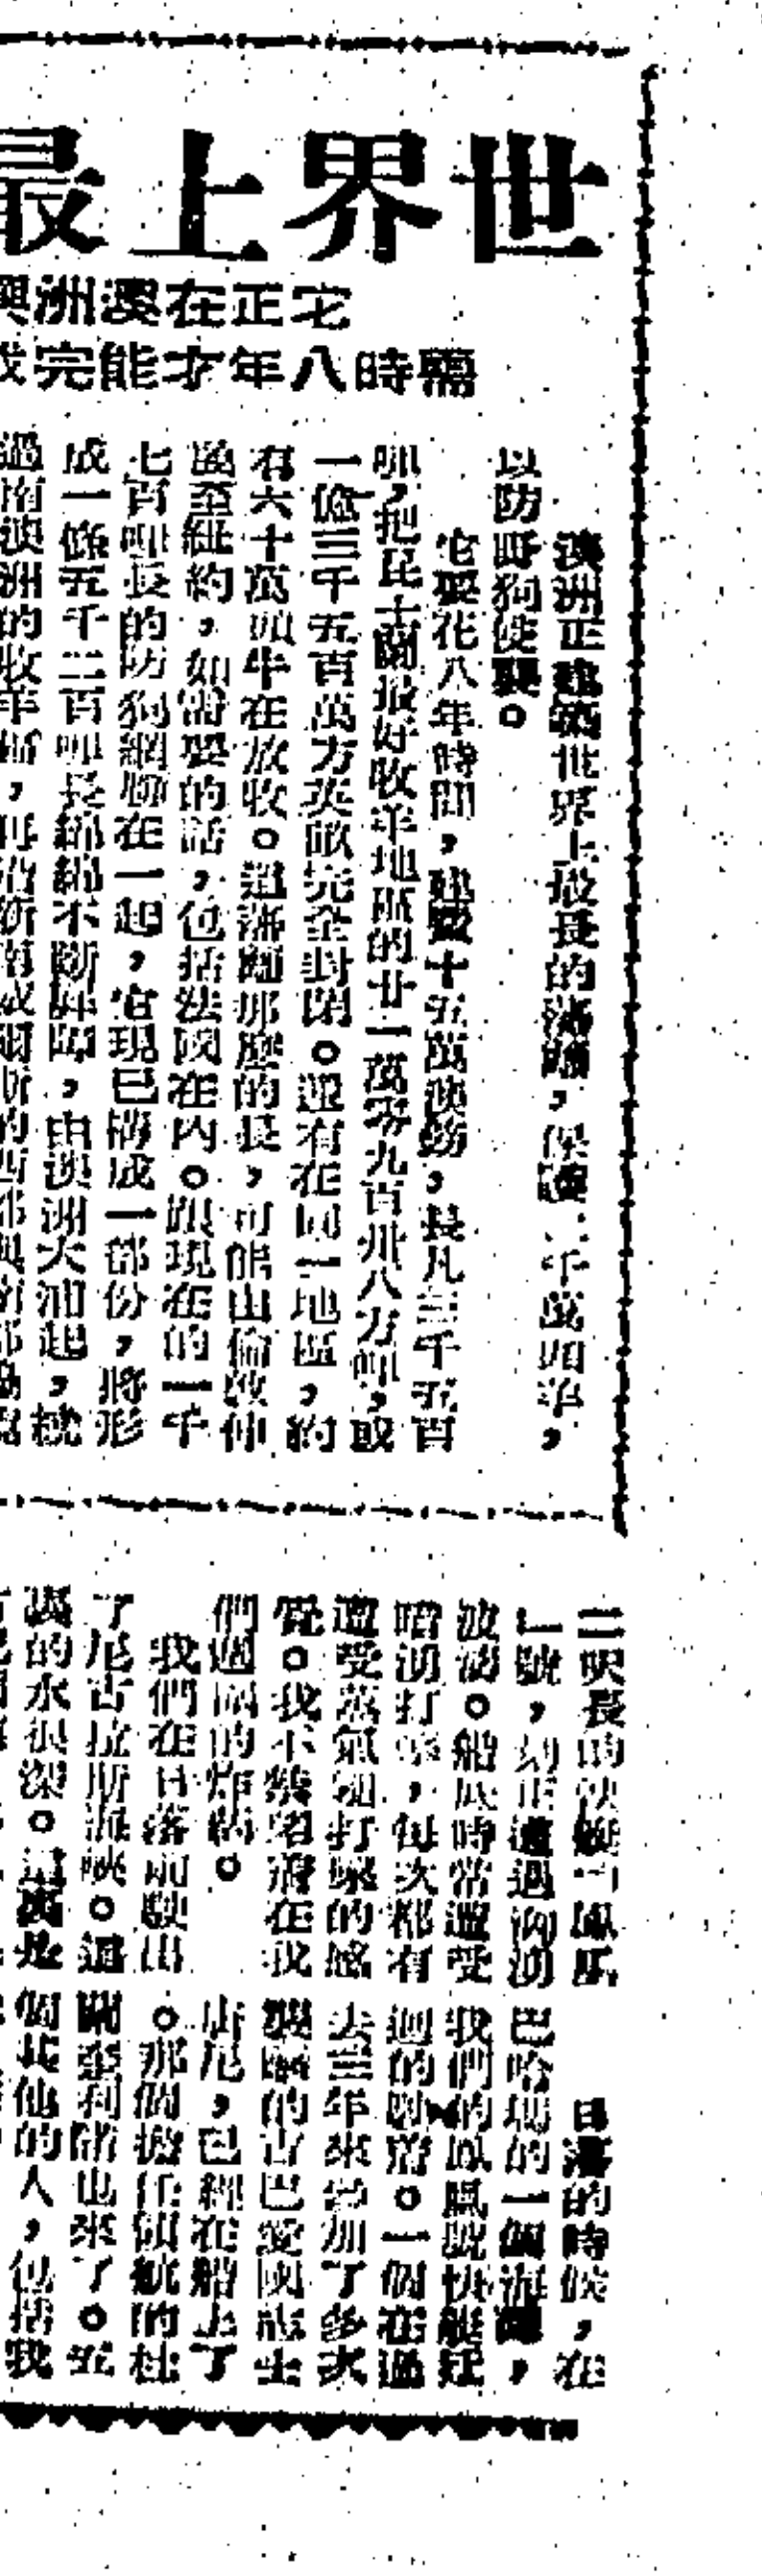 世界上最
它正在澳洲興
需時八年才能完成
澳洲正建築世界上最長的藩籬，保護二千萬頭羊，
以防野狗侵襲。
它要花八年時間，建費十五萬澳鎊，長凡三千五百
哩，把昆士蘭最好牧羊地區的廿一萬零九百卅八方哩，或
一億三千五百萬方英畝完全封閉。還有在同一地區，約
有六十萬頭牛在放牧。這藩籬那麼的長，可能由倫敦伸
展至紐約，如需要的話，包括法國在內。跟現在的一千
七百哩長的防狗網聯在一起，它現已構成一部份，將形
成一條五千二百哩長綿綿不斷屏障，由澳洲大浦起，
過南澳洲的牧羊區，再沿新南威爾斯的西部與
二呎長的快艇「鳳凰
」號，刻正遭遇洶湧
波濤。船底時常遭受
暗湧打擊，每次都有
遭受蒸氣錘打擊的感
覺。我不禁記着在我
們週圍的炸藥。
我們在日落前駛出
了尼古拉斯海峽。這
裏的水很深。這裏是
日落的時候，在
巴哈瑪的一個海
我們的鳳凰號快艇
迎的
過
去三年來參加了多次
襲擊的古巴愛國志士
唐尼，已經在船上了
。那個擔任領航的杜
關亞利諾也來了。五
個其他的人，包括我